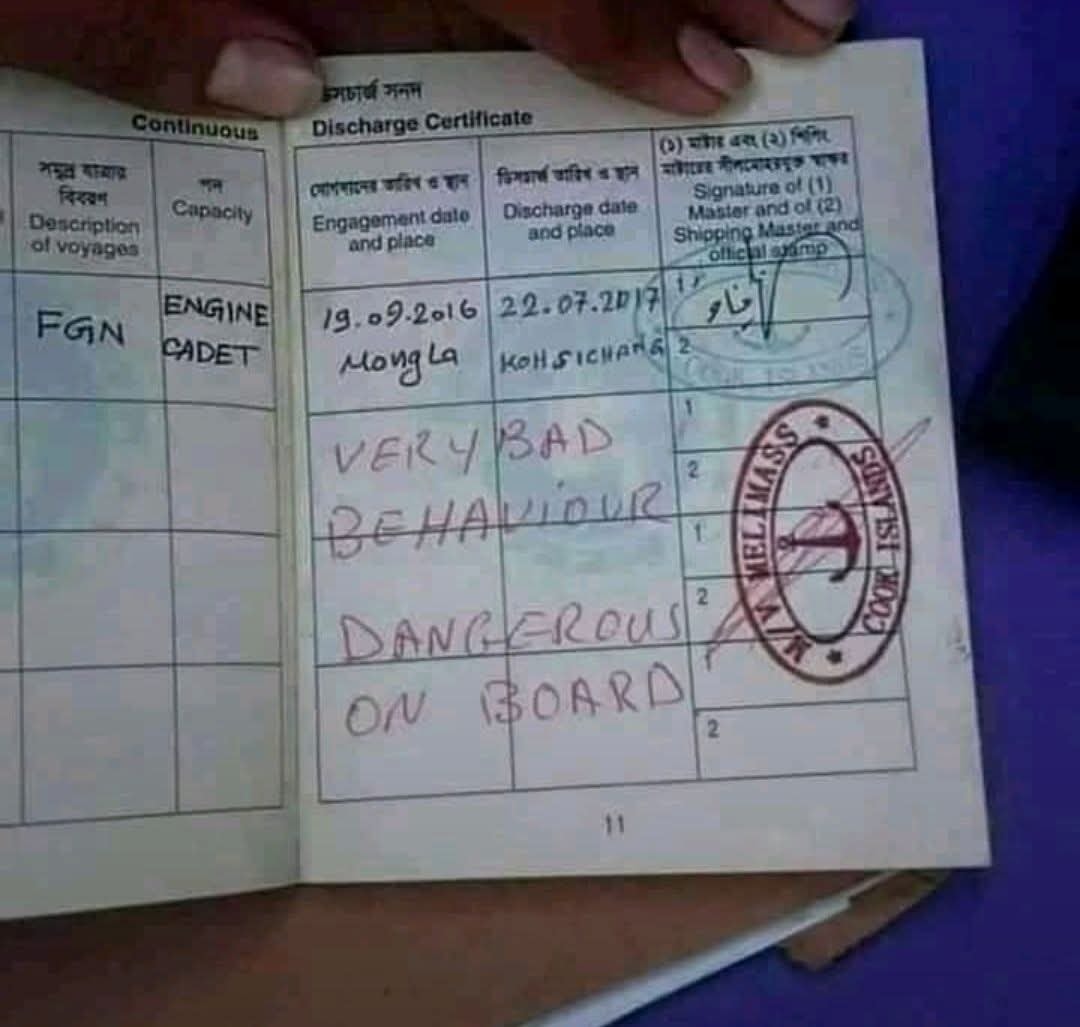 ডিসচার্জ সনদ
Continuous Discharge Certificate
সমুদ্র যাত্রার বিবরণ
Description of voyages
পদ
Capacity
যোগদানের তারিখ ও স্থান
Engagement date and place
ডিসচার্জ তারিখ ও স্থান
Discharge date and place
(১) মাষ্টার এবং (২) শিপিং
মাষ্টারের সীলমোহরযুক্ত স্বাক্ষর
Signature of (1)
Master and of (2)
Shipping Master and
official stamp
FGN
ENGINE
CADET
19.09.2016
MongLa
22.07.2017
KOHSICHANG
1
2
VERY BAD
BEHAVIOUR
DANGEROUS
ON BOARD
1
2
1
2
1
2
M/V MELIMASS
COOK ISLANDS
11